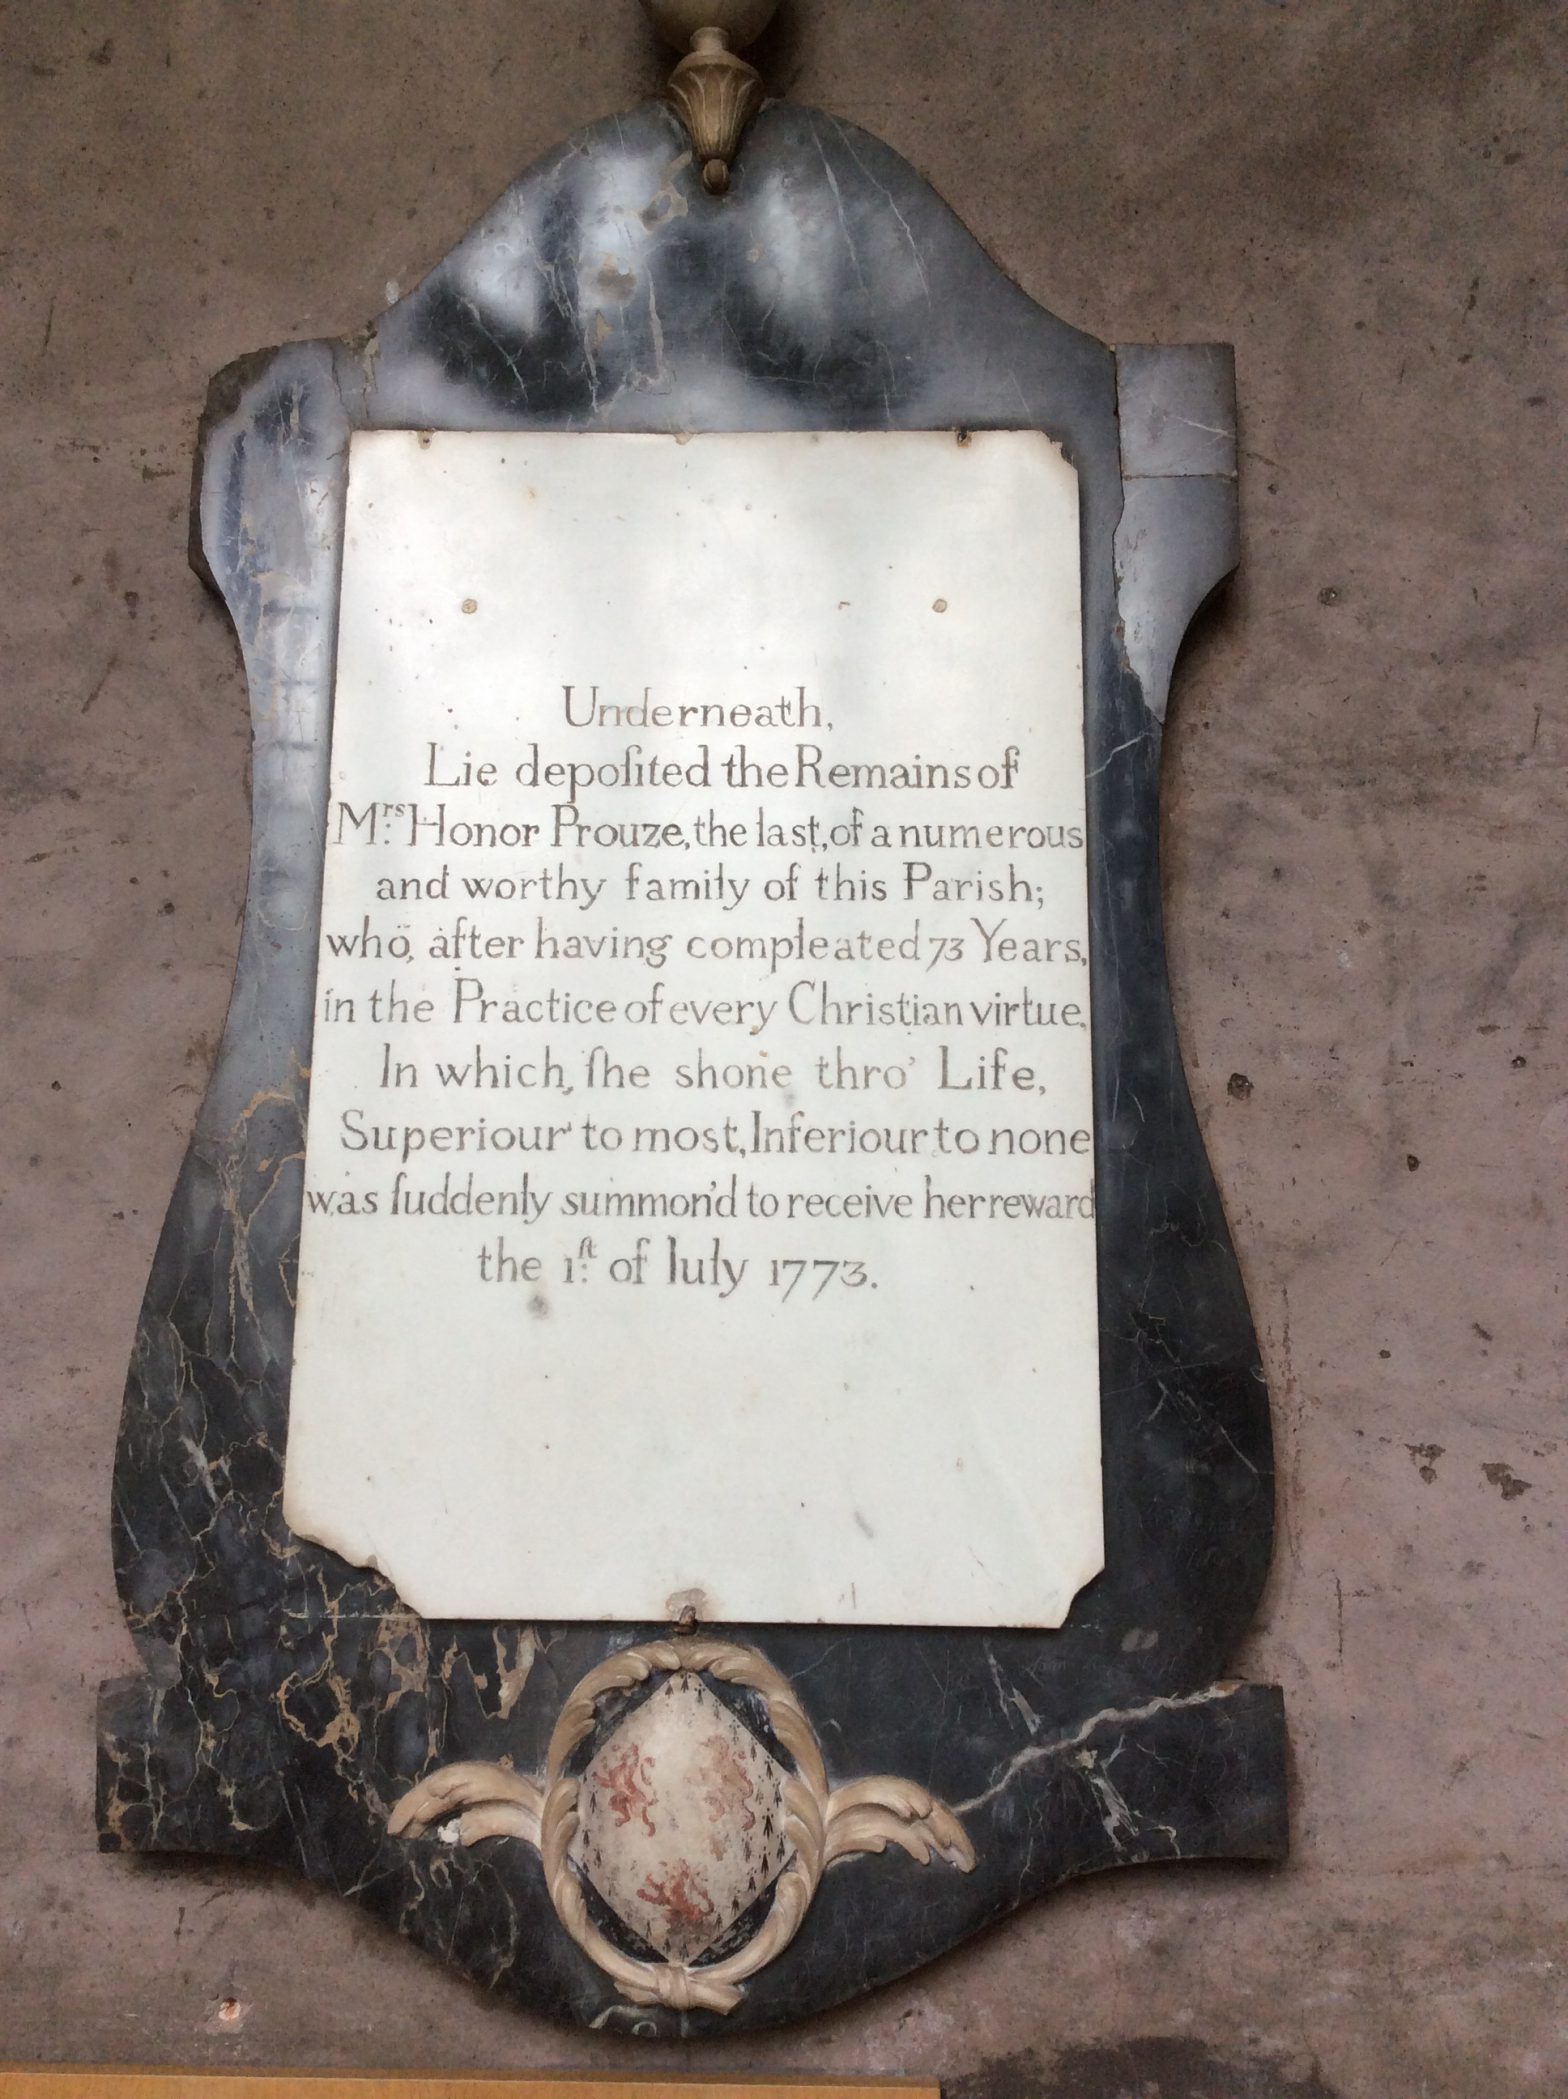 Underneath,
Lie depoſited the Remains of
Mrs: Honor Prouze, the last, of a numerous
and worthy family of this Parish;
who, after having compleated 73 Years,
in the Practice of every Christian virtue,
In which, ſhe shone thro' Life,
Superiour to most, Inferiour to none
was ſuddenly summon'd to receive her reward
the 1ſt: of Iuly 1773.